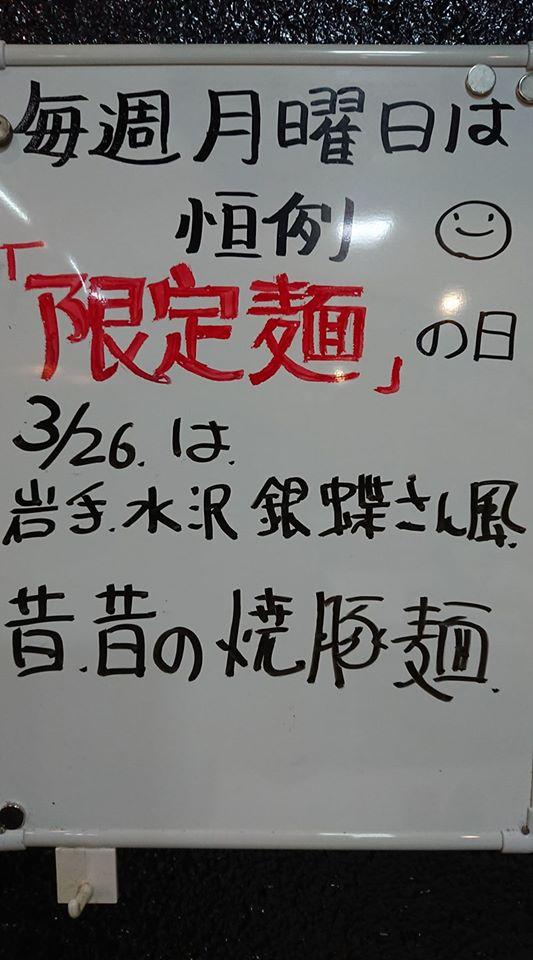 毎週月曜日は
恒例
「限定麺」の日
3/26.は
岩手.水沢 銀蝶さん風
昔.昔の焼豚麺